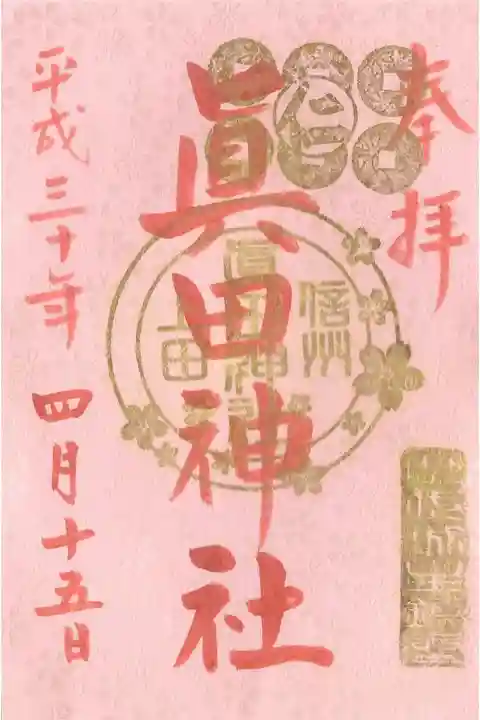 奉拝
眞田神社
信州
眞田神社
上田
平成三十年 四月十五日